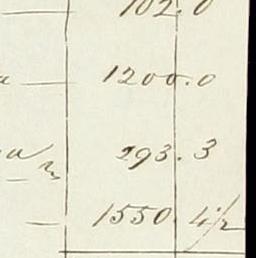 102.0
1200.0
293.3
1550 4½